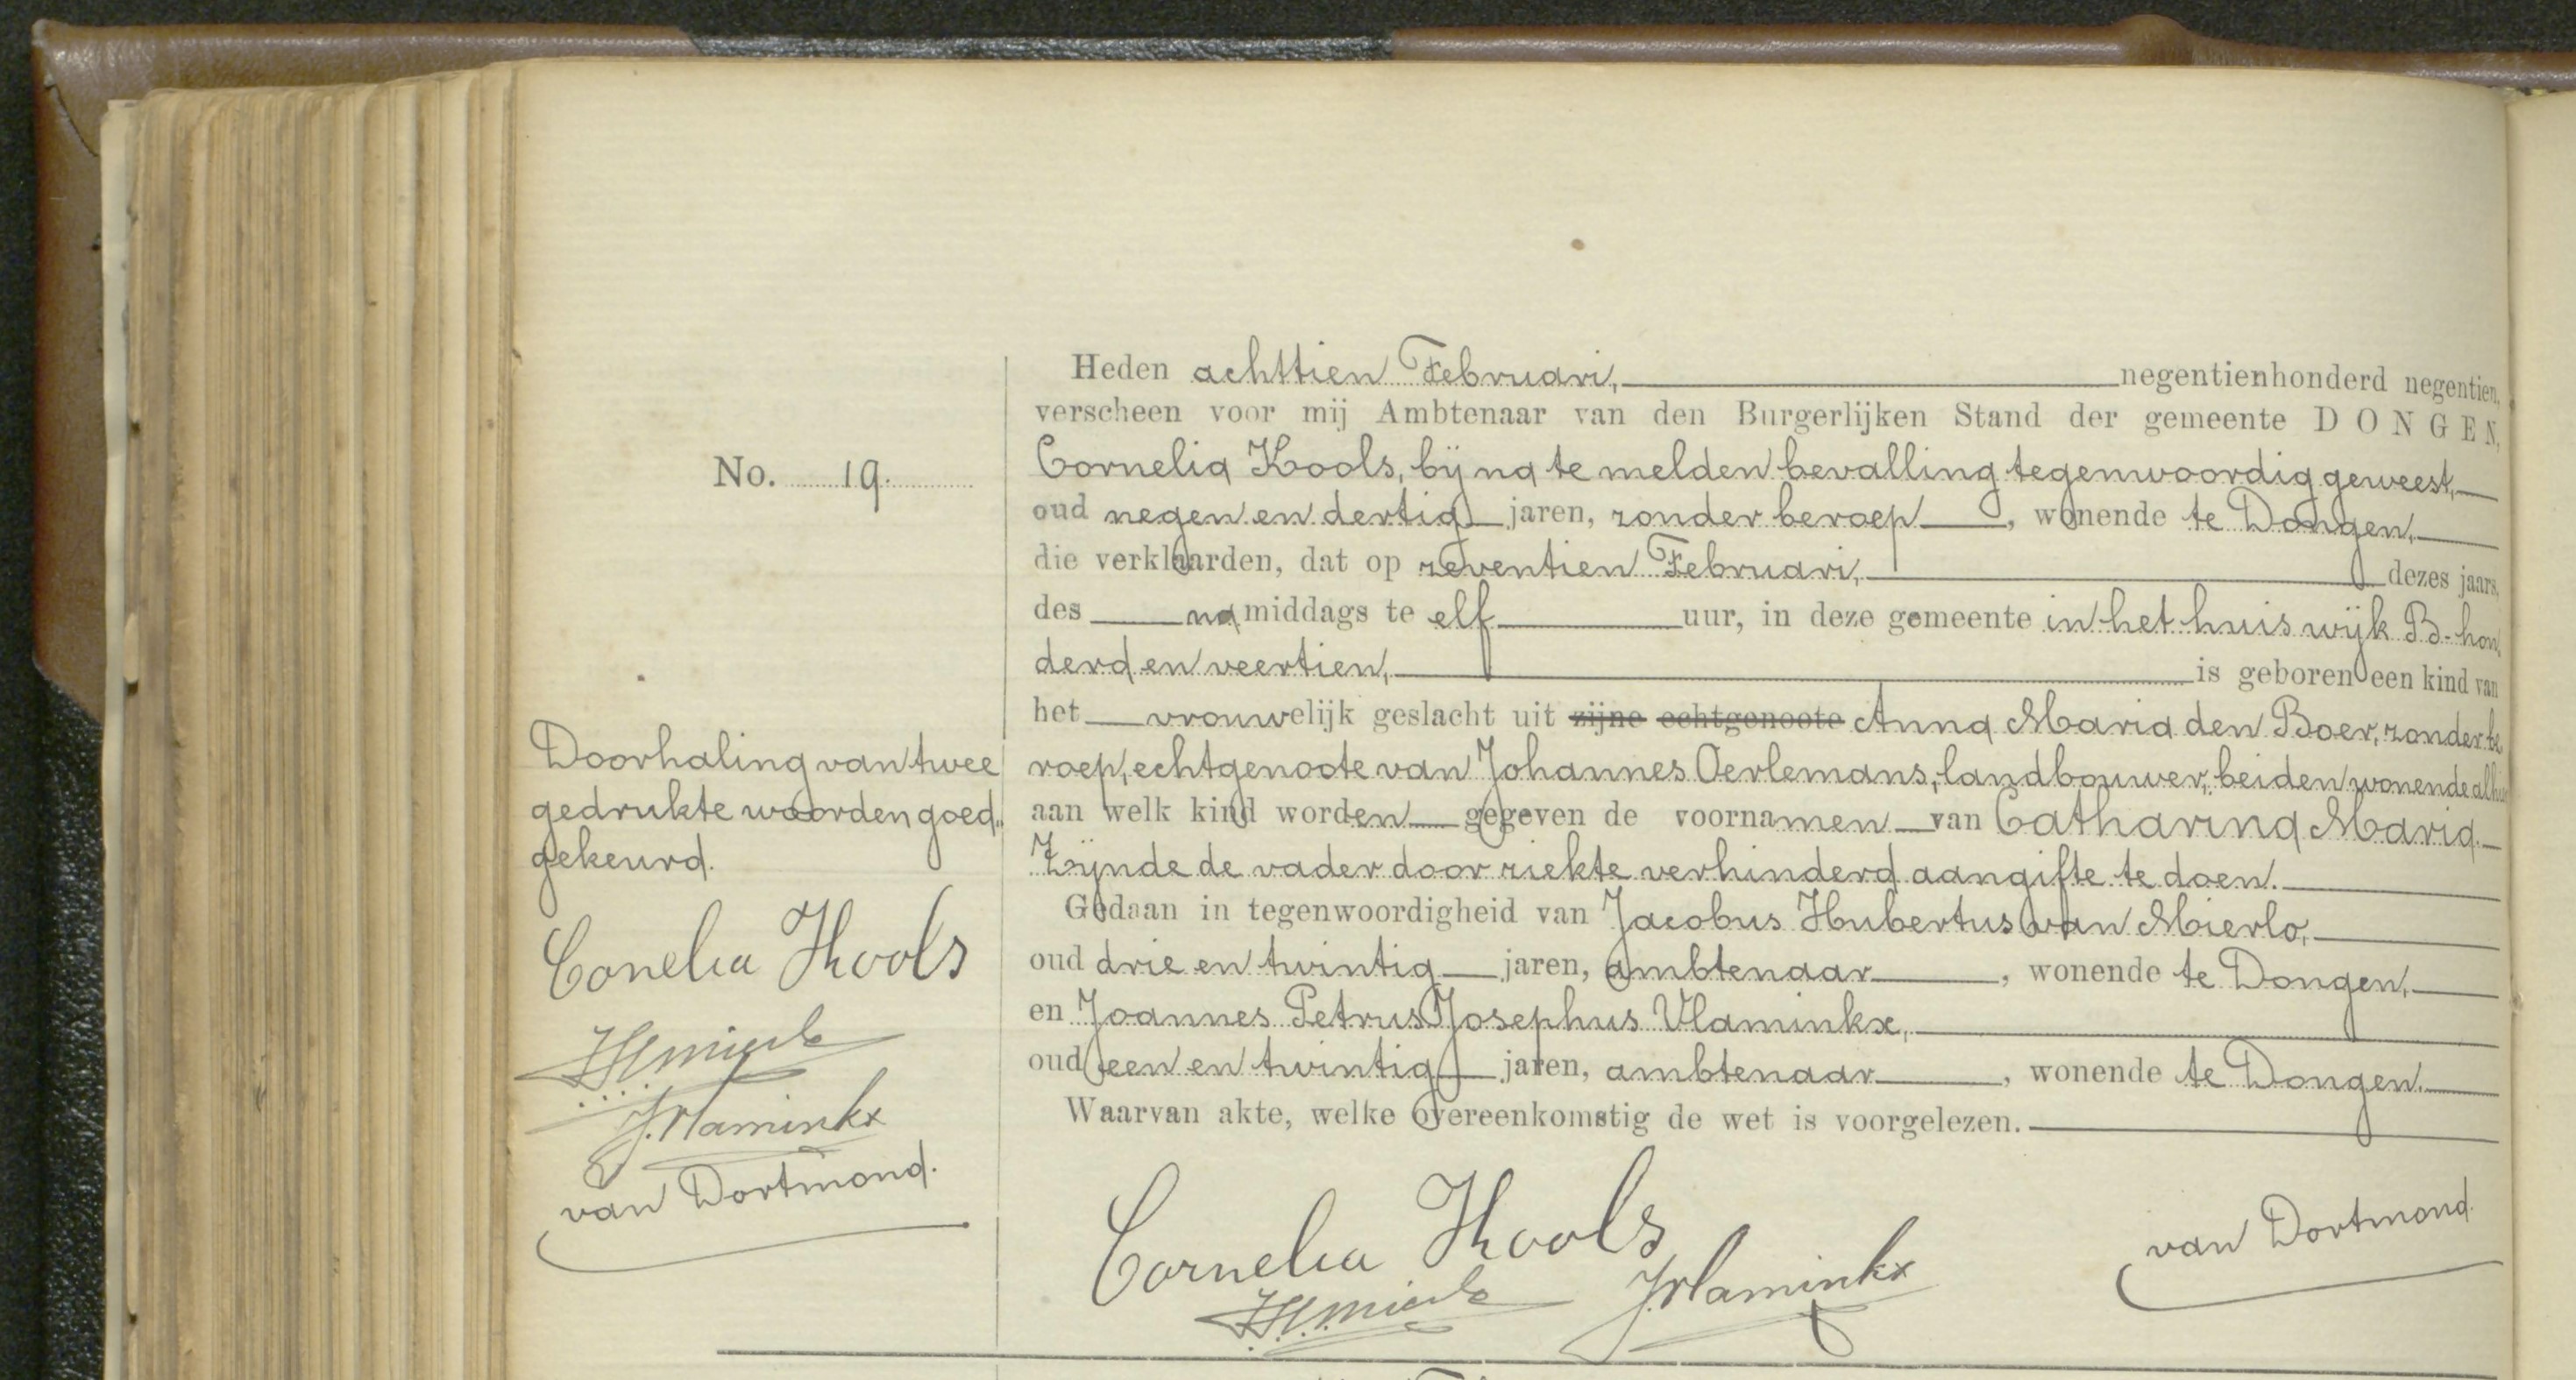 No. 19.
Heden achttien Februari, negentienhonderd negentien,
verscheen voor mij Ambtenaar van den Burgerlijken Stand der gemeente DONGEN,
Cornelia Kools, bij na te melden bevalling tegenwoordig geweest,
oud negen en dertig jaren, zonder beroep, wonende te Dongen,
die verklaarden, dat op zeventien Februari, dezes jaars,
des na middags te elf uur, in deze gemeente in het huis wijk B-hon
derd en veertien, is geboren een kind van
het vrouwelijk geslacht uit zijne echtgenoote Anna Maria den Boer, zonder be
roep, echtgenoote van Johannes Oerlemans, landbouwer, beiden wonende
aan welk kind worden gegeven de voornamen van Catharina Maria.
Zijnde de vader door ziekte verhinderd aangifte te doen.
Gedaan in tegenwoordigheid van Jacobus Hubertus van Mierlo,
oud drie en twintig jaren, ambtenaar, wonende te Dongen,
en Joannes Petrus Josephus Vlaminkx,
oud een en twintig jaren, ambtenaar, wonende te Dongen.
Waarvan akte, welke overeenkomstig de wet is voorgelezen.
Cornelia Kools
van Dortmond.
JVlaminkx
Doorhaling van twee
gedrukte woorden goed„
gekeurd.
Conelia Kools
J.Vlaminkx
van Dortmond.